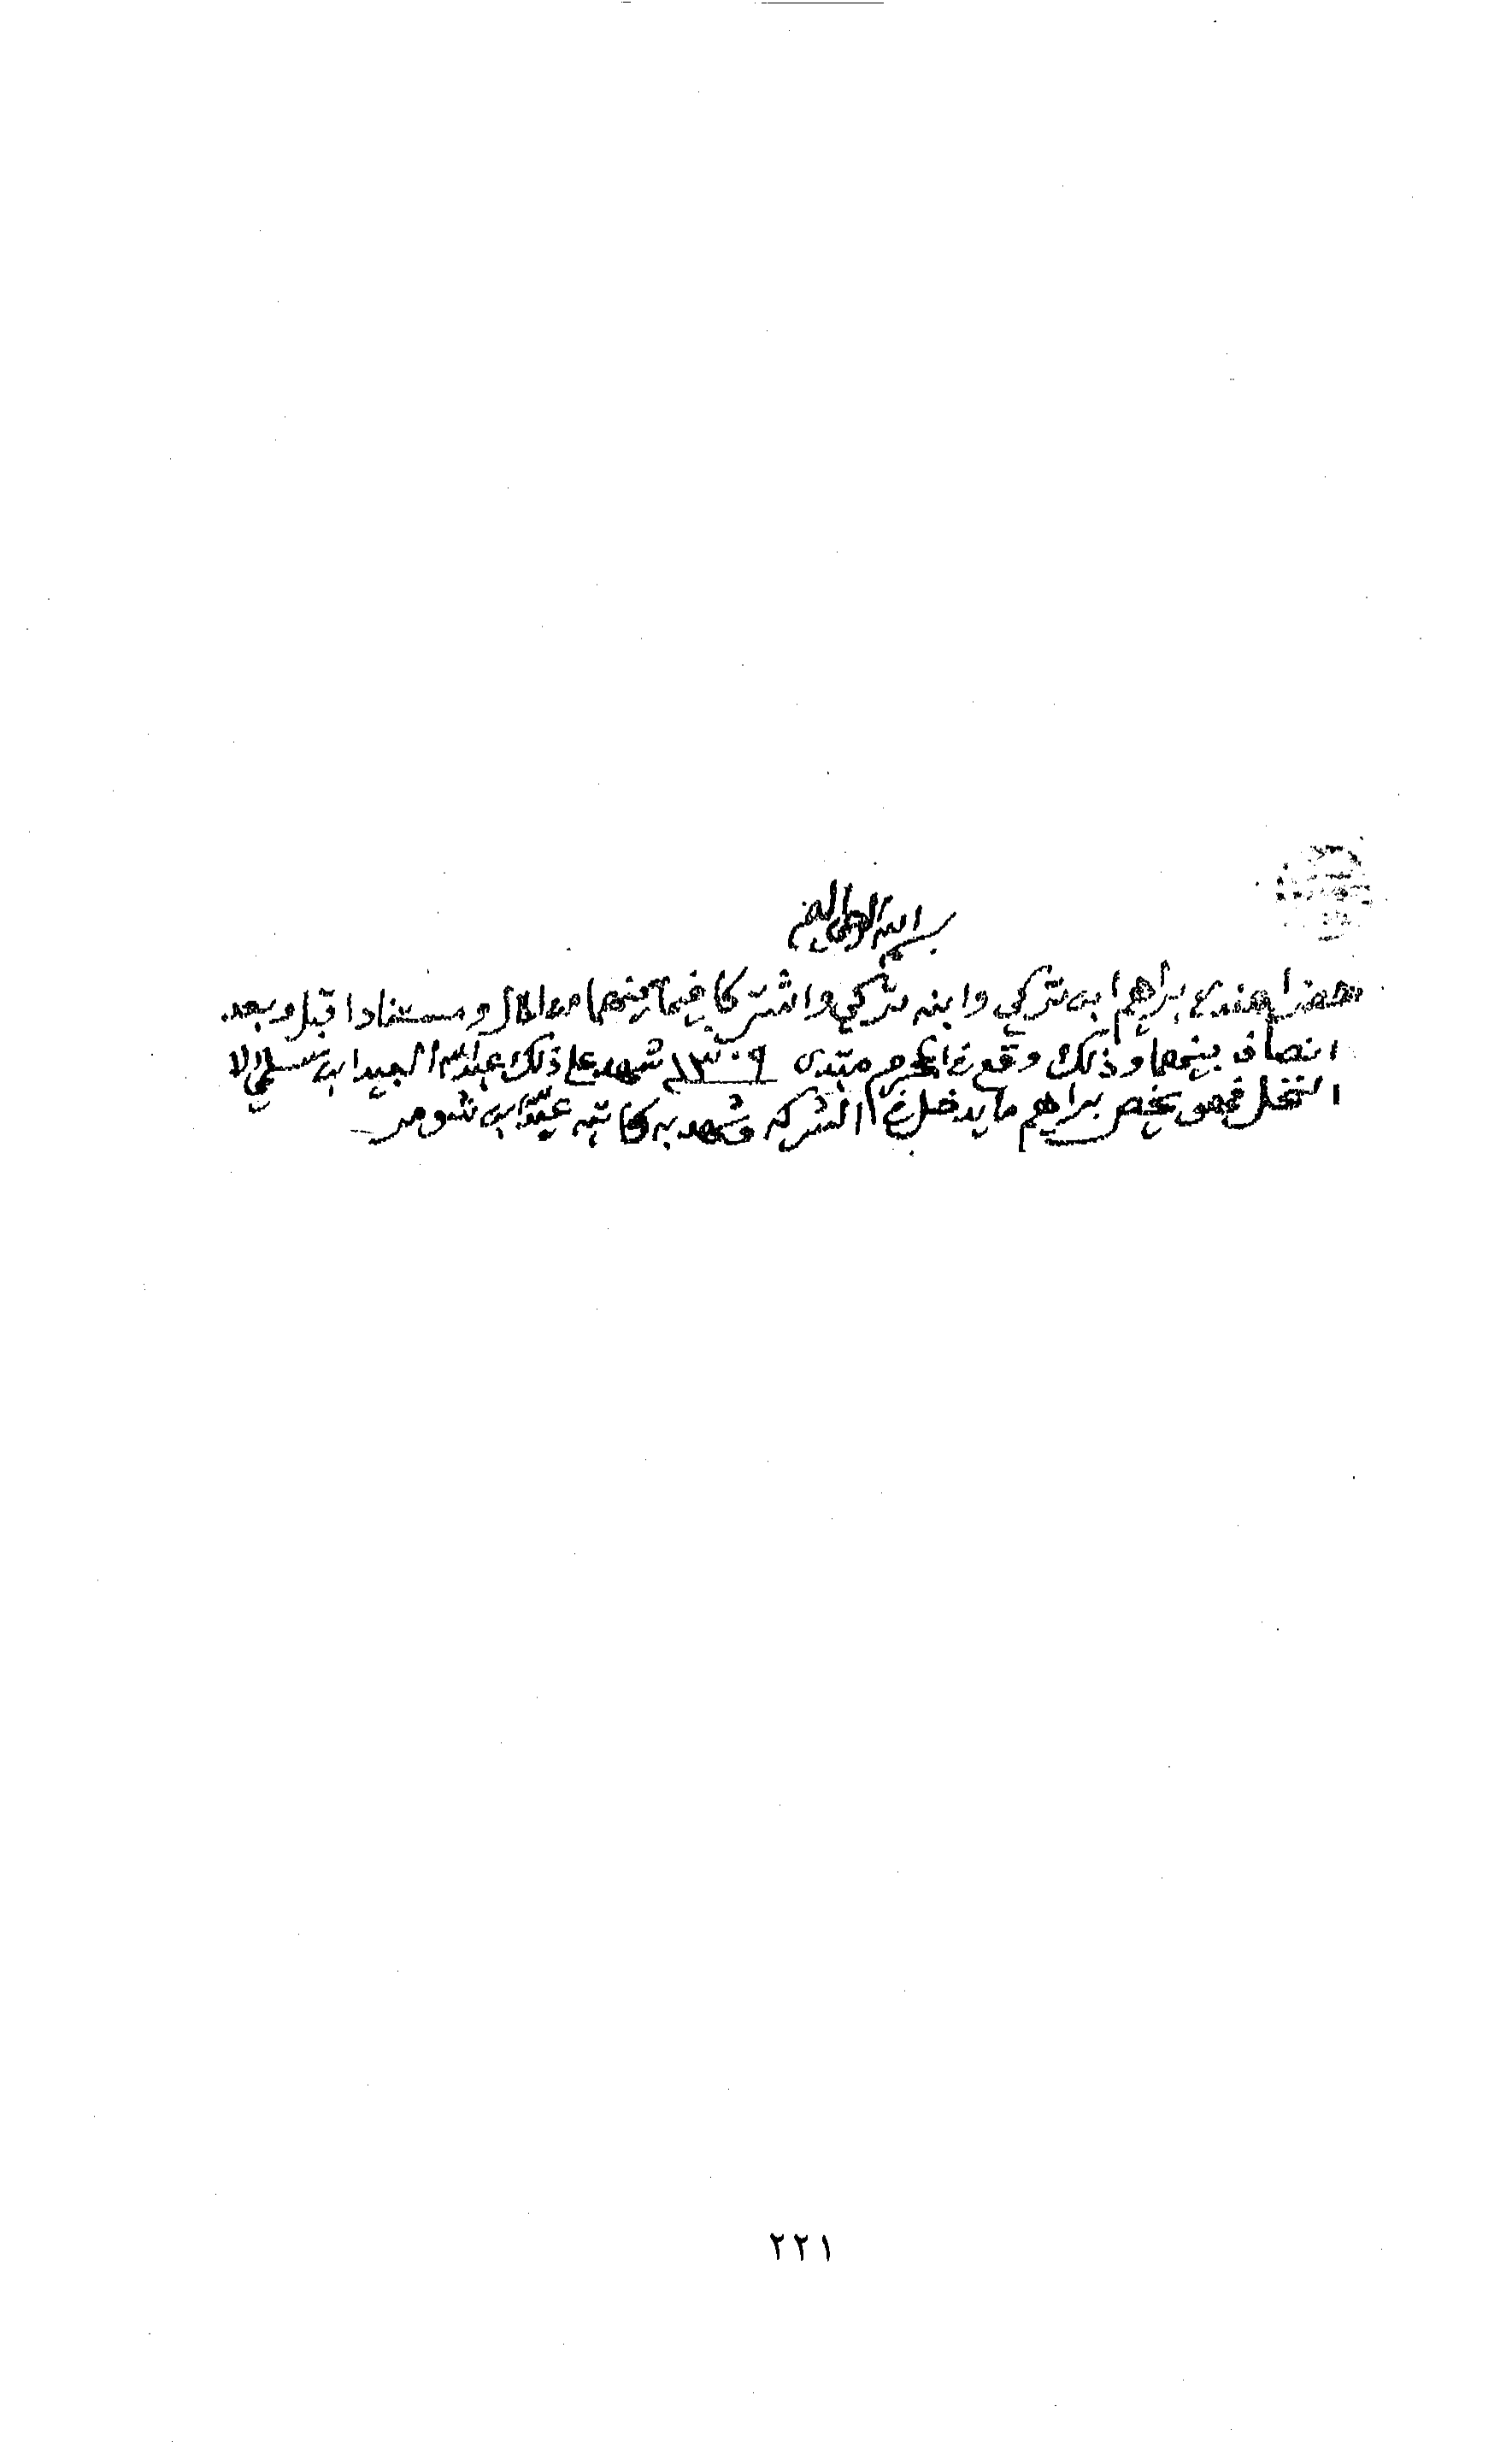 بسم الله الرحمن الرحيم
حضرا عندي براهيم ابن تركي وابنه تركي واشتركا فيما بينهما من المال ومستفادا قبل وبعد
انصاف بينهما وذلك وقع في محرم مبتدى ١٣٠٩ شهد على ذلك عبدالله العبيد ابن سلمي الا
النخل فهو يخص براهيم ما يدخل في الشركه وشهد به كاتبه عبدالله ابن شومر
٢٢١